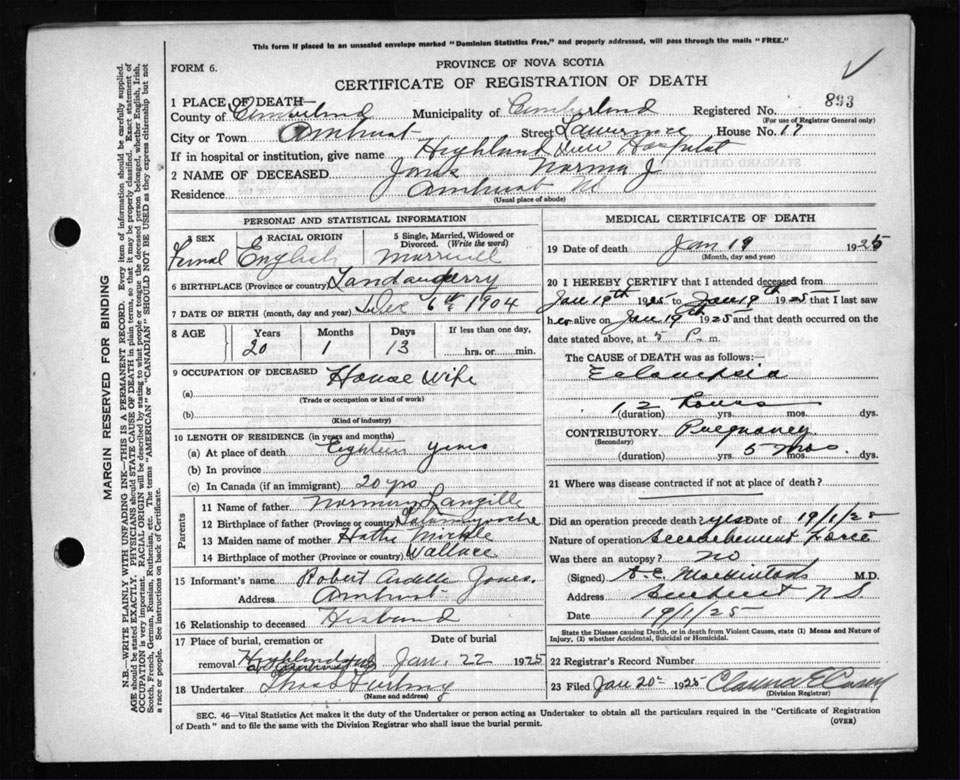 This form if placed in an unsealed envelope marked "Dominion Statistics Free," and properly addressed, will pass through the mails "FREE."
FORM 6.
PROVINCE OF NOVA SCOTIA
CERTIFICATE OF REGISTRATION OF DEATH
1 PLACE OF DEATH—
County of Cumberland Municipality of Cumberland Registered No. 893
(For use of Registrar General only)
City or Town Amherst Street Lawrence House No. 17
If in hospital or institution, give name Highland View Hospital
2 NAME OF DECEASED Jones Norma J
Residence Amherst NS
(Usual place of abode)
PERSONAL AND STATISTICAL INFORMATION
3 SEX Femal
4 RACIAL ORIGIN English
5 Single, Married, Widowed or Divorced. (Write the word) Married
6 BIRTHPLACE (Province or country) Londonderry
7 DATE OF BIRTH (month, day and year) Dec 6th 1904
8 AGE Years Months Days If less than one day,
20 1 13 hrs. or min.
9 OCCUPATION OF DECEASED
(a) House Wife
(Trade or occupation or kind of work)
(b)
(Kind of industry)
10 LENGTH OF RESIDENCE (in years and months)
(a) At place of death Eighteen years
(b) In province
(c) In Canada (if an immigrant) 20 yrs
Parents
11 Name of father Norman Langille
12 Birthplace of father (Province or country) Tatamagouche
13 Maiden name of mother
14 Birthplace of mother (Province or country) Wallace
15 Informant's name Robert Ardelle Jones.
Address Amherst
16 Relationship to deceased Husband
17 Place of burial, cremation or removal Highland Date of burial Jan. 22 1925
18 Undertaker Furlong
(Name and address)
MEDICAL CERTIFICATE OF DEATH
19 Date of death Jan 19 1925
(Month, day and year)
20 I HEREBY CERTIFY that I attended deceased from
Jan 19th 1925 to Jan 19th 1925 that I last saw
her alive on Jan 19th 1925 and that death occurred on
date stated above, at 5 P. m.
The CAUSE OF DEATH was as follows:
Eclampsia
12 hours
(duration) yrs. mos. dys.
CONTRIBUTORY Pregnancy
(Secondary)
(duration) yrs. 5 mos. dys.
21 Where was disease contracted if not at place of death?
Did an operation precede death? yes Date of 19/1/25
Nature of operation Accouchement Force
Was there an autopsy? no
(Signed) M.D.
Address Amherst N S
Date 19/1/25
State the Disease causing Death, or in death from Violent Causes, state (1) Means and Nature of Injury, (2) whether Accidental, Suicidal or Homicidal.
22 Registrar's Record Number
23 Filed Jan 20 1925 Clarence E Casey
(Division Registrar)
SEC. 46—Vital Statistics Act makes it the duty of the Undertaker or person acting as Undertaker to obtain all the particulars required in the "Certificate of Registration
of Death" and to file the same with the Division Registrar who shall issue the burial permit.
(OVER)
MARGIN RESERVED FOR BINDING
N.B.—WRITE PLAINLY WITH UNFADING INK—THIS IS A PERMANENT RECORD. Every item of information should be carefully supplied.
AGE should be stated EXACTLY. PHYSICIANS should STATE CAUSE OF DEATH in plain terms, so that it may be properly classified. Exact statement of
OCCUPATION is very important. RACIAL ORIGIN will be described by stating to what people or tongue the deceased person belonged, whether English, Irish,
Scotch, French, German, Russian, Ruthenian, etc. The terms "AMERICAN" or "CANADIAN" SHOULD NOT BE USED as they express citizenship but not
a race or people. See instructions on back of Certificate.